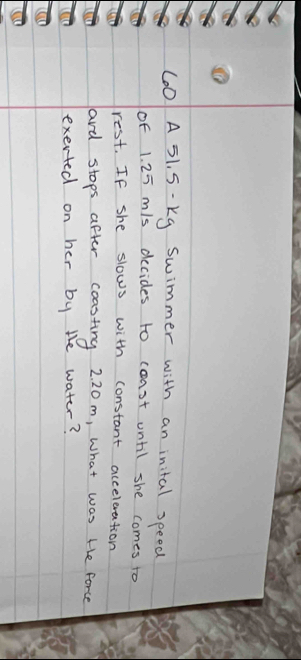 60 A 51.5-kg swimmer with an inital speed
of 1.25 m/s decides to coast until she comes to
rest. If she slows with constant acceleration
and stops after coasting 2.20 m, what was the force
exerted on her by the water?